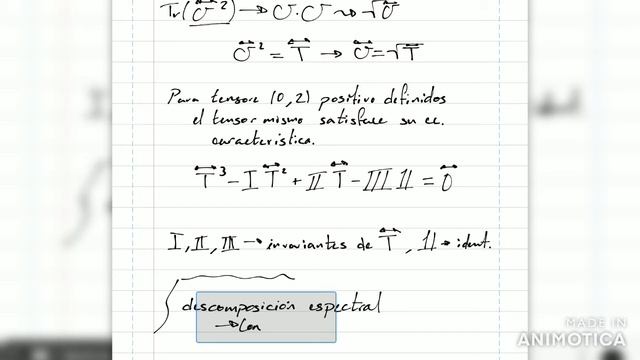 Tr(σ²) → σ.σ ~> √σ
σ² = T → σ = √T
Para tensore (0,2) positivo definidos
el tensor mismo satisface su ec.
característica.
T³ - I T² + II T - III 1 = 0
I, II, III → invariantes de T, 1 → ident.
descomposición espectral
→ Con
MADE IN
ANIMOTICA